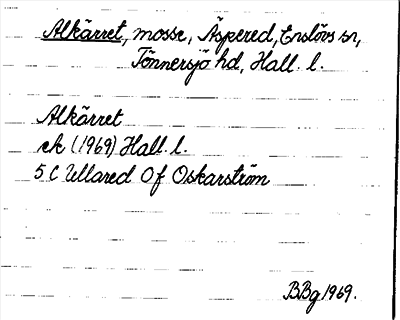 Alkärret, mosse, Äspered, Enslövs sn,
Tönnersjö hd, Hall. l.
Alkärret
ek (1969) Hall l.
5 C Ullared Of Oskarström
BBg 1969.